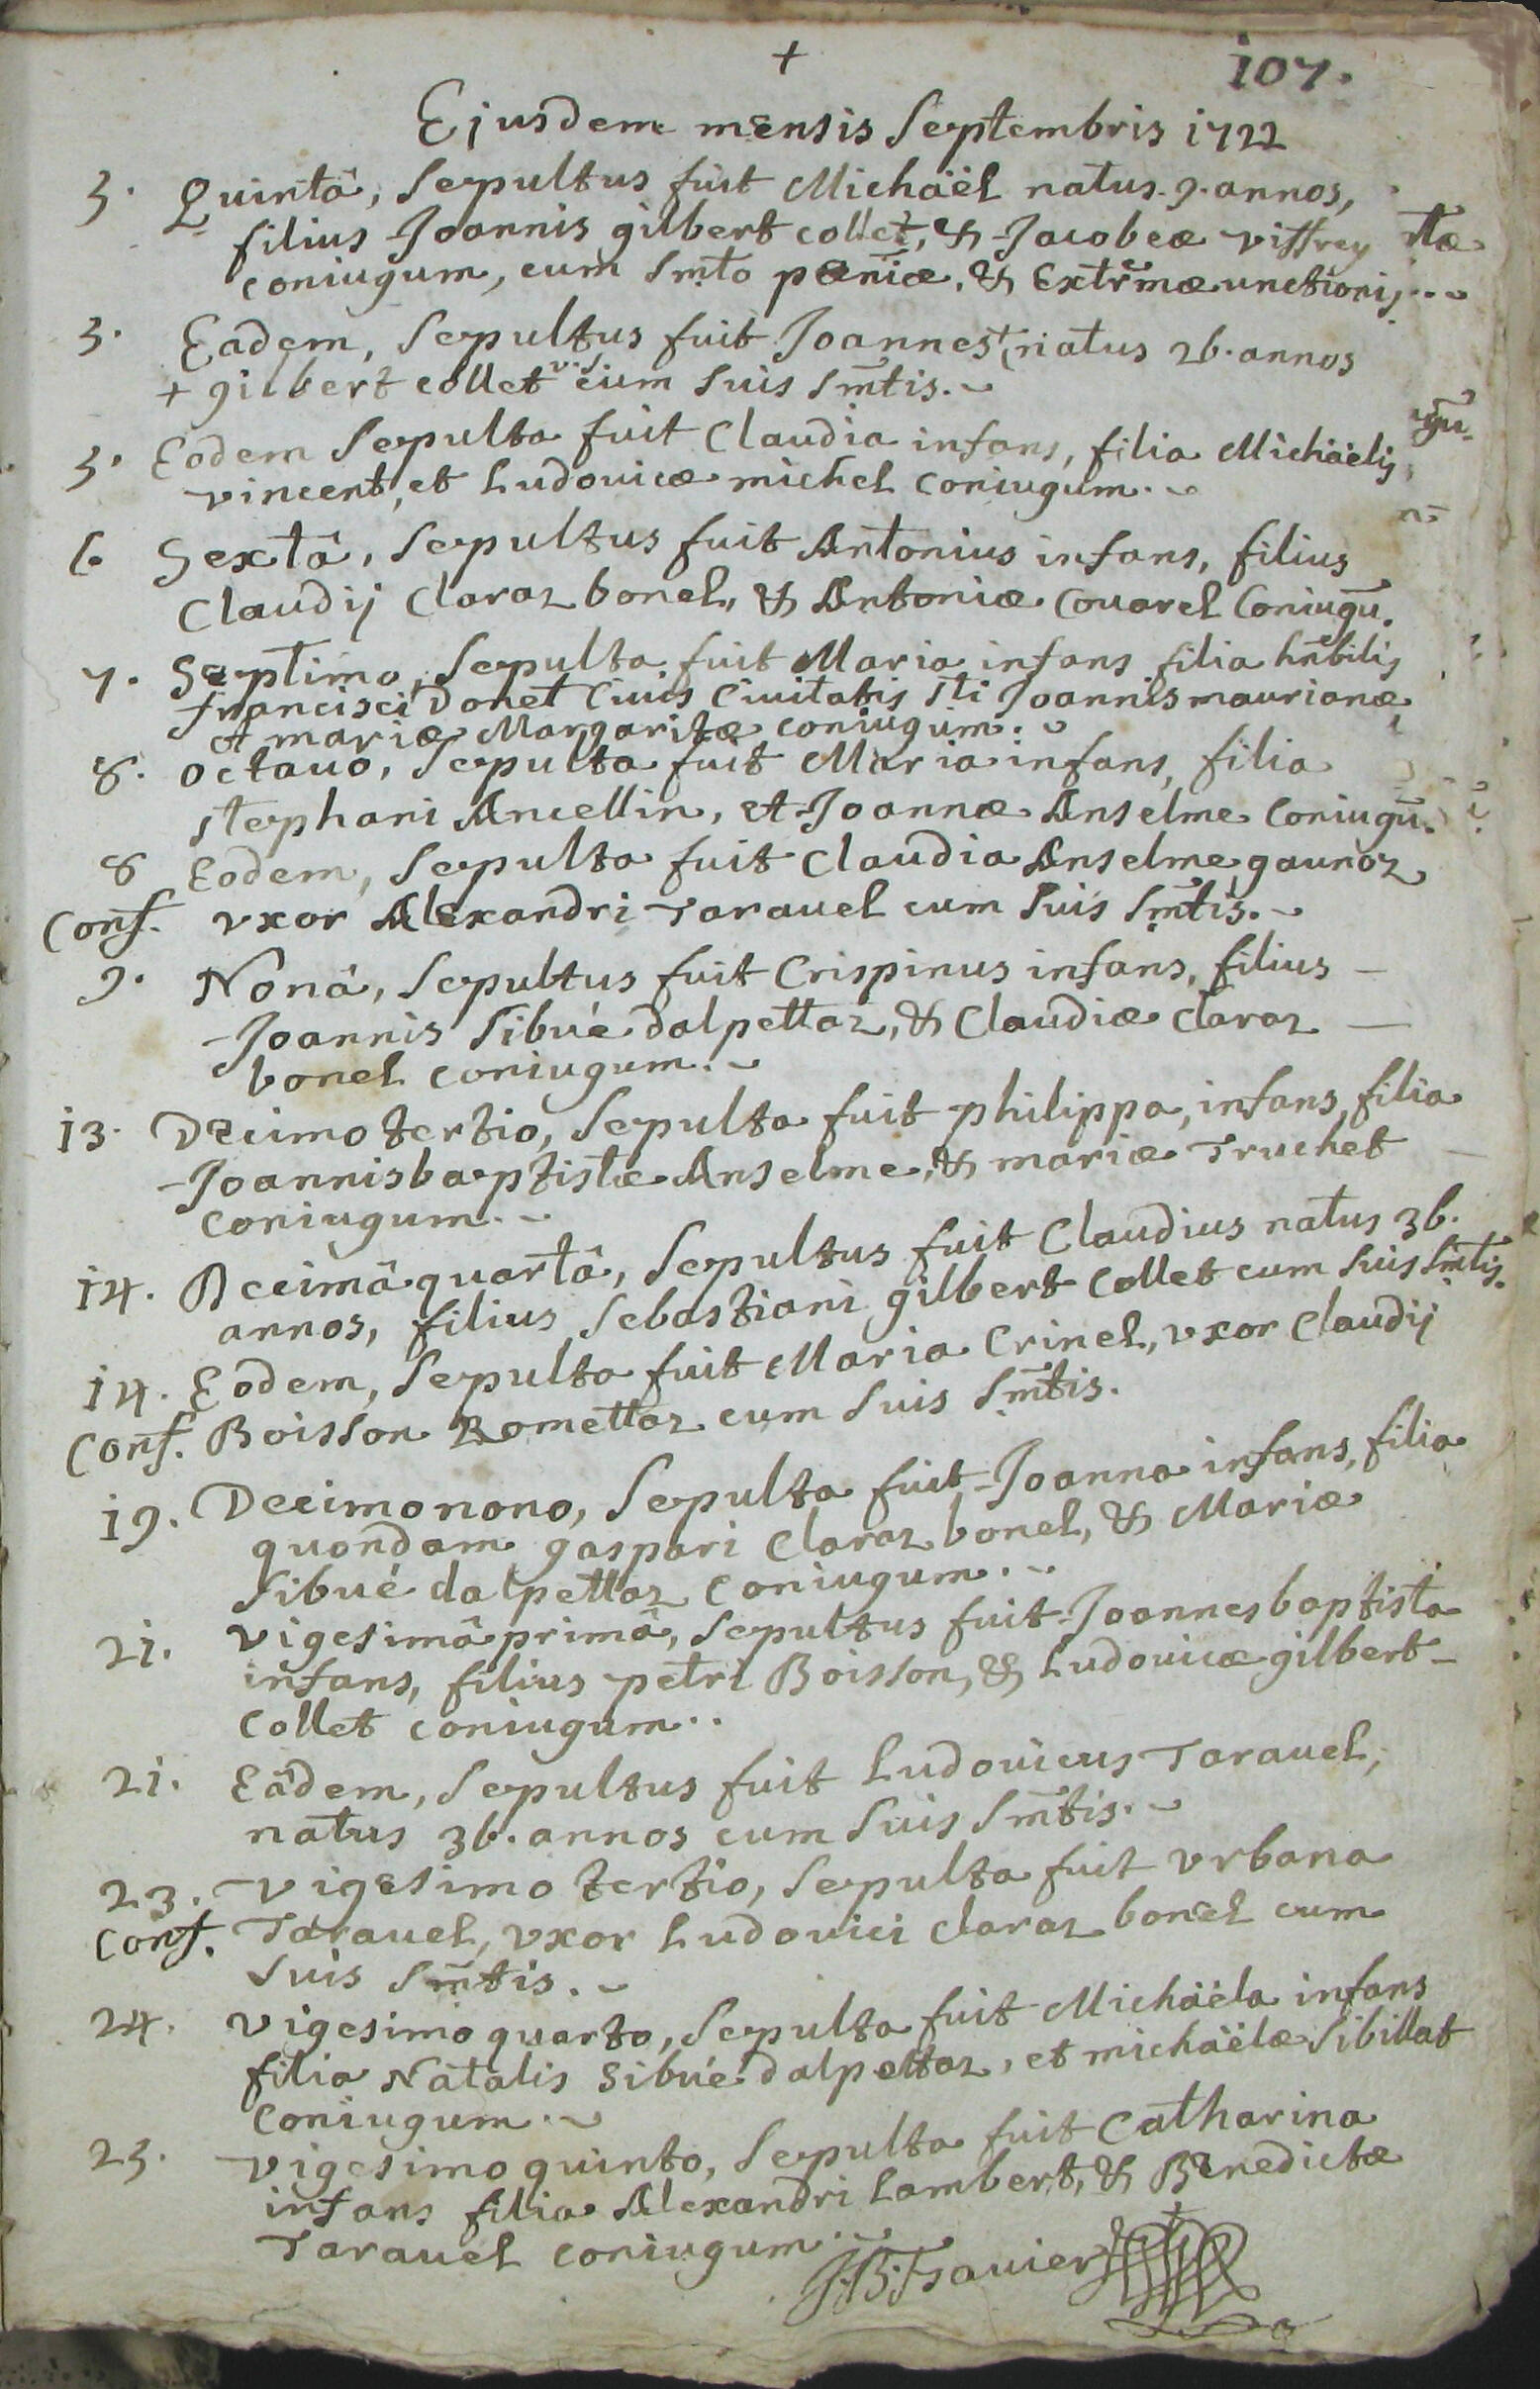 +
107.
Ejusdem mensis Septembris 1722
5. Quintâ, Sepultus fuit Michaël natus .9. annos,
filius Joannis gilbert collet, & Jacobeæ viffrey
coniugum, cum Smto pœniæ, & Extrmæ unctionis..
5. Eâdem, Sepultus fuit Joannes + natus 26. annos
+ gilbert collet cum Suis Smtis.
5. Eodem Sepulta fuit Claudia infans, filia Michaëlis
vincent, et Ludovicæ michel coniugum.
6. Sextâ, Sepultus fuit Antonius infans, filius
Claudij Claraz bonel, & Antoniæ Couarel Coniugū.
7. Septimo, Sepulta fuit Maria infans filia hnebilis
francisci Donet Ciuis Ciuitatis Sti Joannis maurianæ,
et mariæ Margaritæ coniugum.
8. octauo, Sepulta fuit Maria infans, filia
stephani Ancellin, et Joannæ Anselme coniugū.
8 Eodem, Sepulta fuit Claudia Anselme gaunoz
Conf. vxor Alexandri Tarauel cum Suis Smtis.
9. Nonâ, Sepultus fuit Crispinus infans, filius —
Joannis Sibué dalpettaz, & Claudiæ Claraz —
bonel coniugum.
13. Decimo tertio, Sepulta fuit philippa, infans, filia
Joannisbaptistæ Anselme, & mariæ Truchet
coniugum.
14. Decimâ quartâ, Sepultus fuit Claudius natus 36.
annos, filius Sebastiani gilbert Collet cum Suis Smtis.
14. Eodem, Sepulta fuit Maria Crinel, vxor Claudij
Conf. Boisson Romettaz cum Suis Smtis.
19. Decimo nono, Sepulta fuit Joanna infans, filia
quondam gaspari Claraz bonel, & Mariæ
Sibué dalpettaz Coniugum.
21. vigesimâ primâ, Sepultus fuit Joannesbaptista
infans, filius petri Boisson, & Ludouicæ gilbert-
Collet coniugum..
21. Eâdem, Sepultus fuit Ludouicus Tarauel,
natus 36. annos cum Suis Smtis.
23. Vigesimo tertio, Sepulta fuit vrbana
Conf. Tarauel, vxor Ludouici Claraz bonel cum
Suis Smtis.
24. vigesimo quarto, Sepulta fuit Michaëla infans
filia Natalis Sibué dalpettaz, et michaëlæ Sibillat
coniugum.
25. vigesimo quinto, Sepulta fuit Catharina
infans filia Alexandri Lambert, & Benedictæ
Tarauel coniugum.